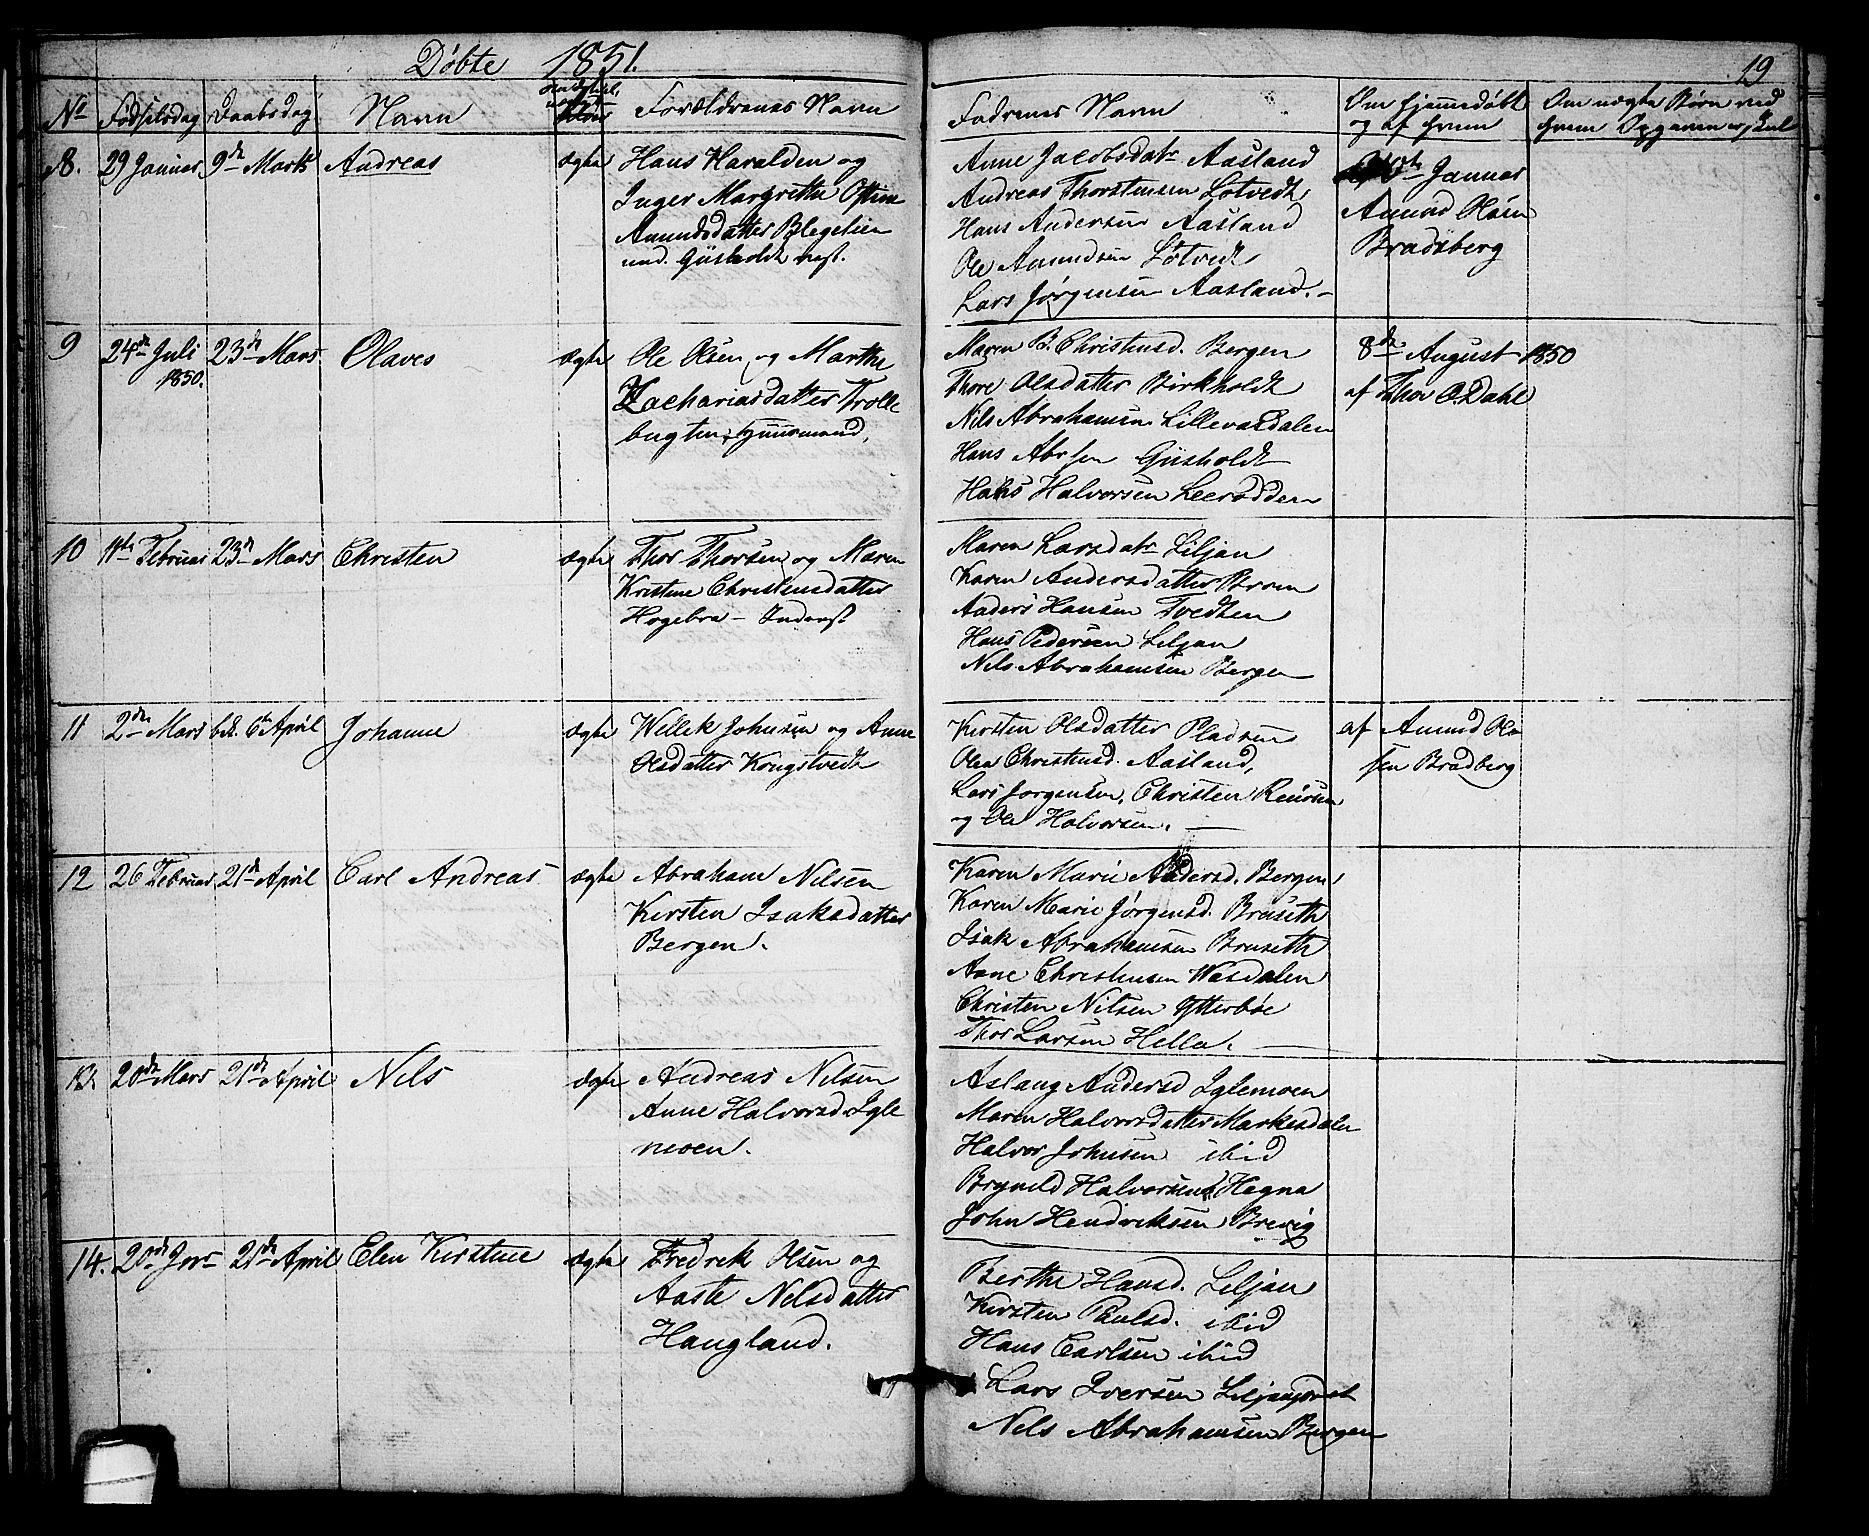 Døbte 1851.
19
No Fødselsdag Daabsdag Navn Forældrenes Navn Fadrenes Navn Om hjemmedøbt og af hvem Om uægte Børn ved hvem Opgaven er skeet
8. 29 Januar 9de Marts Andreas ægte
Hans Haralden og
Inger Margrethe
Amundsdatter
Gusholdt
Anne Jacobsdatr Aasland
Andreas Thorstensen Lotvedt
Hans Andersen Aasland
Ole Amundsen Lotvedt
Lars Jørgensen Aasland.
Januar
Amund Olsen
Bradsberg
9 24de Juli 1850. 23de Mars Olaves ægte
Ole Olsen og Marthe
Zachariasdatter Trolle
bugten, Huusmand,
Maren B. Christensd. Bergen
Thore Olsdatter Birkholdt
Nils Abrahamsen Lillevasdalen
Hans Absen Gusholdt
Hans Halvorsen Leerødden
8de August 1850
af Thor O. Dahl
10 11te Februar 23de Mars Christen ægte
Thor Thorsen og Maren
Kristine Christensdatter
Hogebra - Inderst
Maren Larsdatr Liljan
Karen Andersdatter Broen
Anders Hansen Tvedten
Hans Pedersen Liljan
Nils Abrahamsen Bergen
11 2den Mars 6te April Johanne ægte
Wellek Johnsen og Anne
Olsdatter Kongstvedt
Kirsten Olsdatter Pladsen
Olea Christensd. Aasland,
Lars Jorgensen, Christen
og Ole Halvorsen.
af Amund Ol
sen Bradberg
12 26 Februar 21de April Carl Andreas ægte
Abraham Nilsen
Kirsten Isaksdatter
Bergen.
Karen Marie Andersd. Bergen
Karen Marie Jørgensd. Bruseth
Isak Abrahamsen Bruseth
Aane Christensen Wasdalen
Christen Nilsen Ytterbøe
Thor Larsen Hella.
13. 20de Mars 21de April Nils ægte
Andreas Nilsen
Anne Halvorsd. Igle
moen.
Aslaug Andersd Iglemoen
Maren Halvorsdatter Markesdalen
Halvor Johnsen ibid
Brynild Halvorsen Hegna
John Hendriksen Brevig
14. 20de 21de April Elen Kirstine ægte
Fredrek Olsen og
Aaste Nilsdatter
Haugland.
Berthe Hansd. Liljan
Kirsten Paulsd. ibid
Hans Carlsen ibid
Lars Iversen
Nils Abrahamsen Bergen